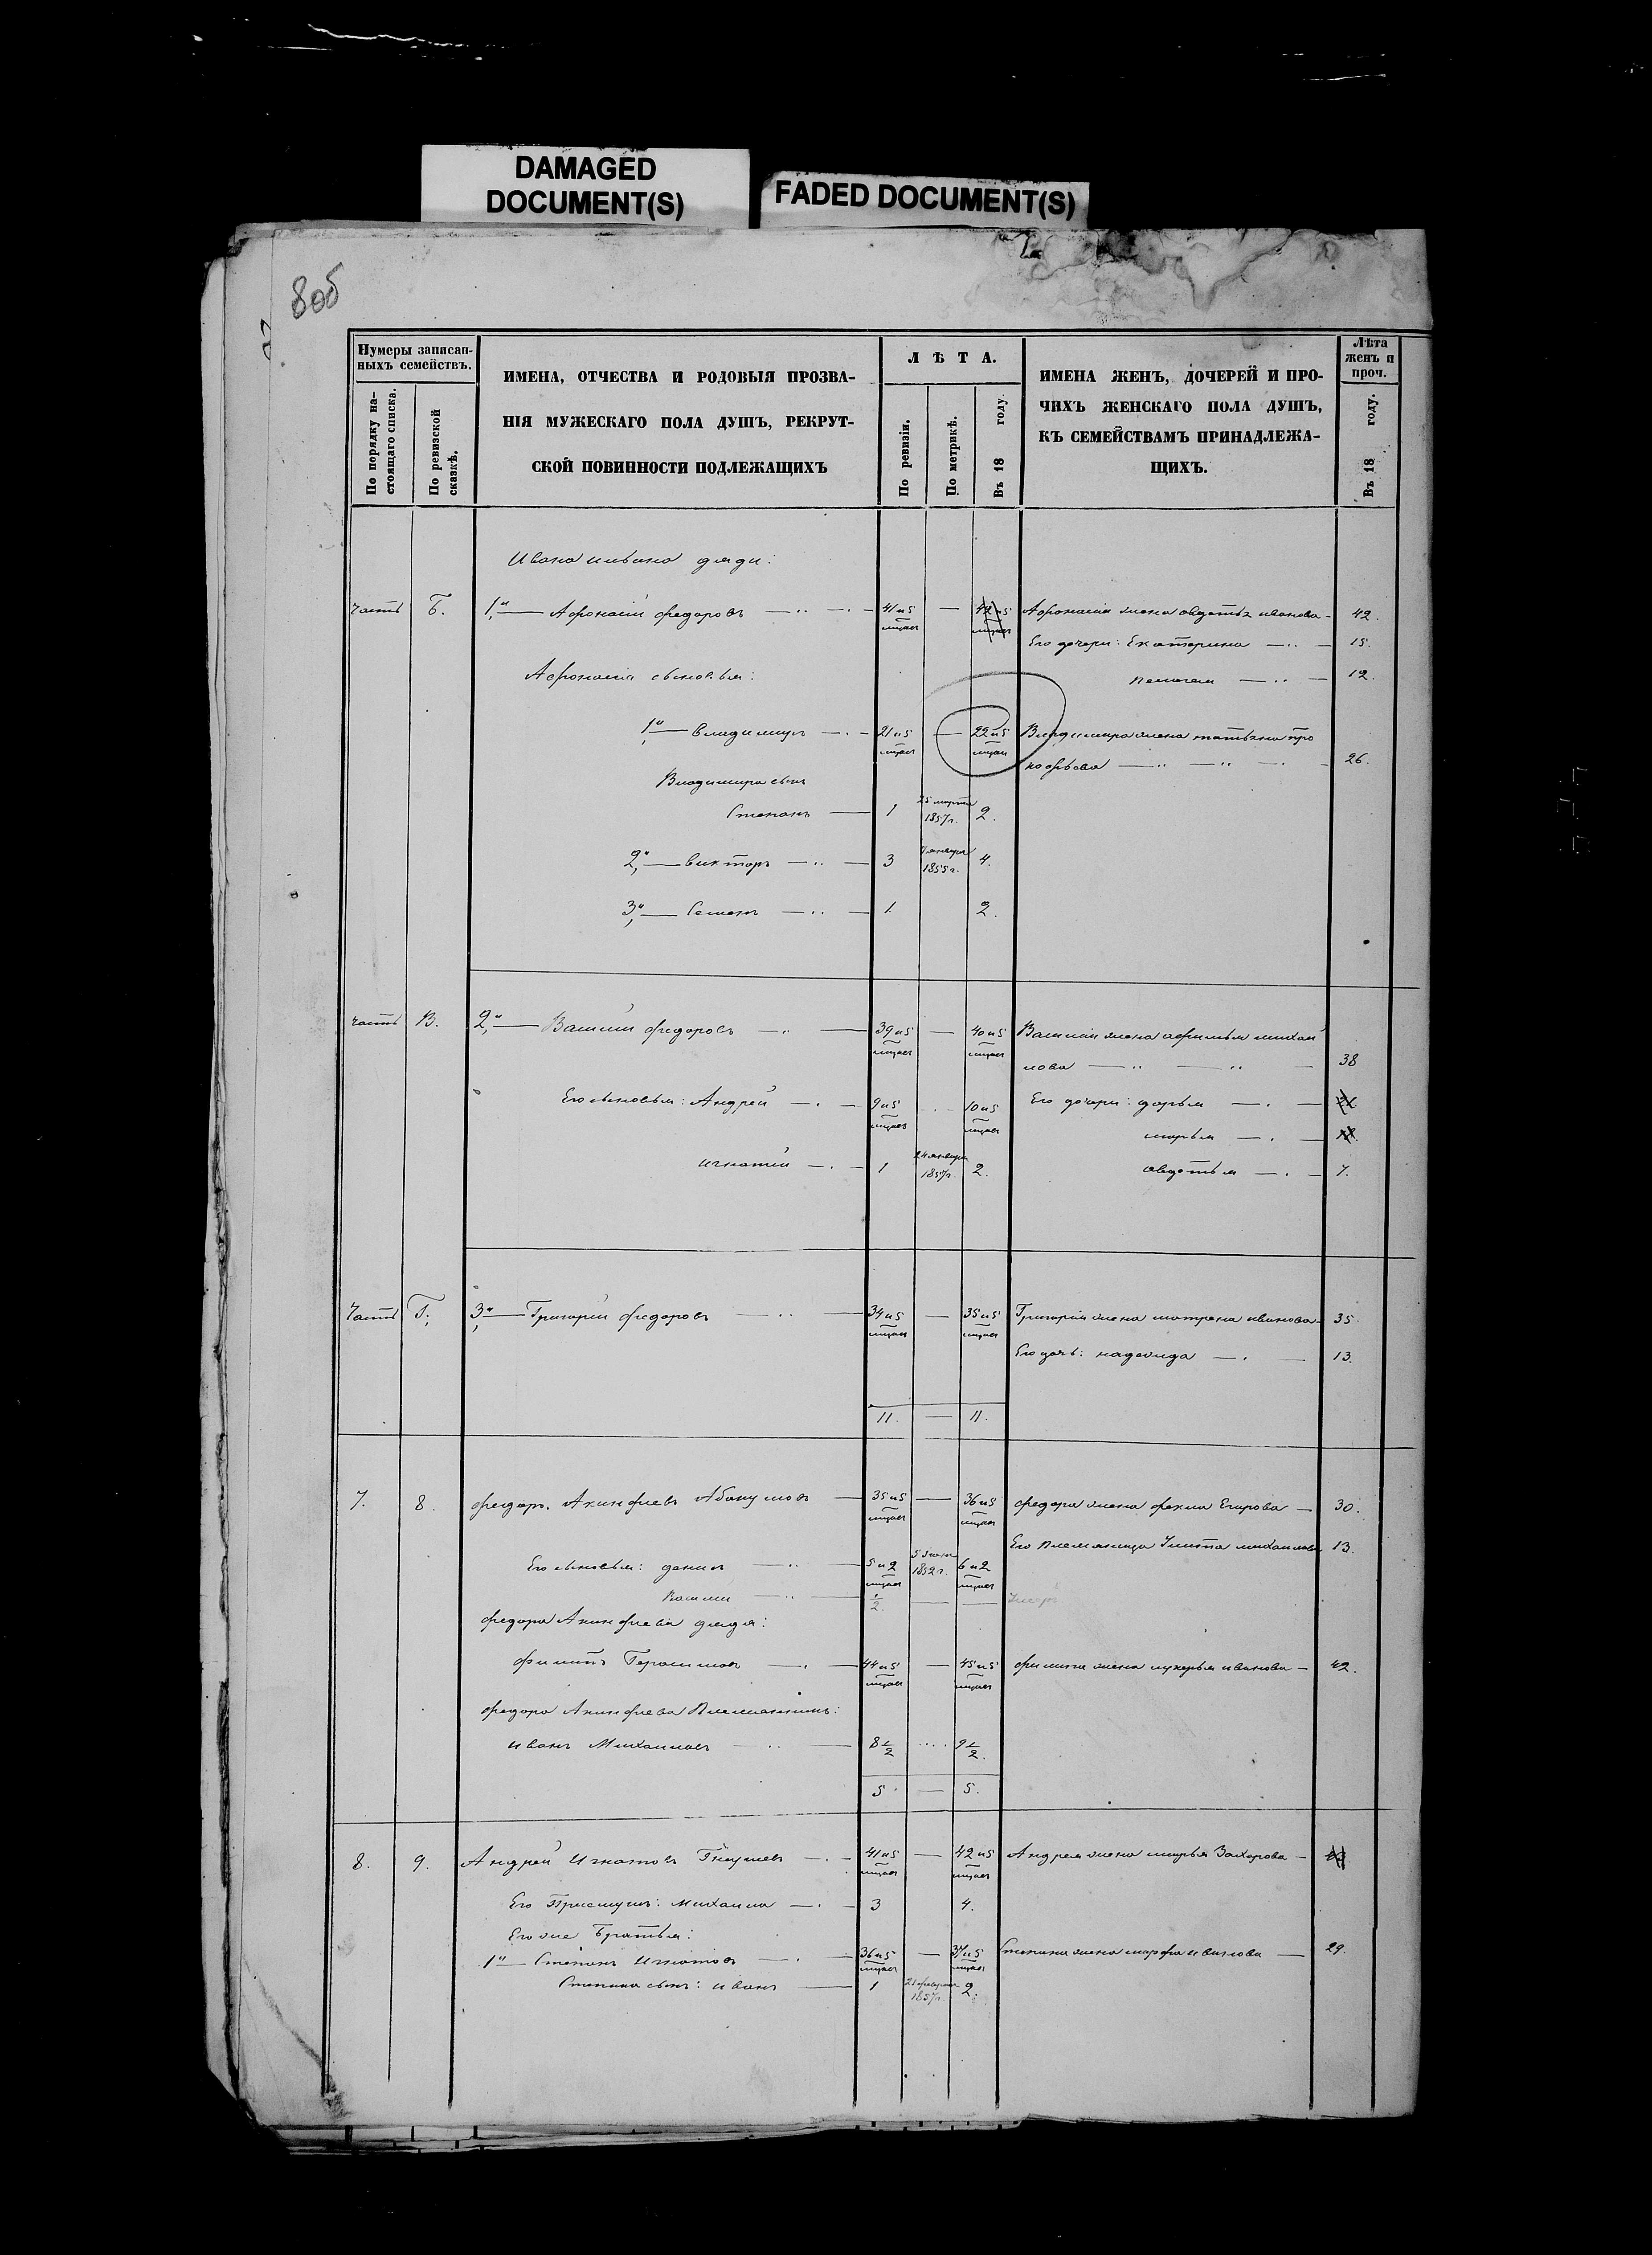 DAMAGED
DOCUMENT(S)
FADED DOCUMENT(S)
8об
Нумеры записан-
ныхъ семействъ.
По порядку на-
стоящаго списка.
По ревизской
сказкѣ.
ИМЕНА, ОТЧЕСТВА И РОДОВЫЯ ПРОЗВА-
НІЯ МУЖЕСКАГО ПОЛА ДУШЪ, РЕКРУТ-
СКОЙ ПОВИННОСТИ ПОДЛЕЖАЩИХЪ
ЛѢТА.
По ревизіи.
По метрикѣ.
Въ 18 году.
ИМЕНА ЖЕНЪ, ДОЧЕРЕЙ И ПРО-
ЧИХЪ ЖЕНСКАГО ПОЛА ДУШЪ,
КЪ СЕМЕЙСТВАМЪ ПРИНАДЛЕЖА-
ЩИХЪ.
Лѣта
женъ и
проч.
Въ 18 году.
Ивана дяди:
часть Б. 1й — Афонасій федоровъ — 41 и 5 — 42 и 5 Афонасія жена авдотья иванова — 42.
Его дочери: Екатерина — 15.
Афонасія сыновья: 12.
1й — владимиръ — 21 и 5 — 22 и 5 Владимира жена татьяна про
кофьева — 26.
Владимира сынъ
Степанъ — 1 25 марта 1857 г. 2.
2й — викторъ — 3 января 1855 г. 4.
3й — Семенъ — 1 2.
часть В. 2й — Василій федоровъ — 39 и 5 — 40 и 5 Василія жена афимья михай
лова — 38
Его сыновья: Андрей — 9 и 5 10 и 5 Его дочери: дарья —
марья —
игнатій — 1 24 января 1857 г. 2. авдотья — 7.
Часть Г. 3й — Григорій федоровъ — 34 и 5 — 35 и 5 Григорія жена матрена иванова — 35.
Его дочь: надежда — 13.
11. — 11.
7. 8. федоръ Акинфіевъ Абакумовъ — 35 и 5 — 36 и 5 федора жена фекла Егорова — 30.
Его племяница Улита михаилова 13.
Его сыновья: данила — 5 и 2 1852 г. 6 и 2
Василій — 1/2 — — Умеръ
федора Акинфіева дядя:
филипъ Герасимовъ — 44 и 5 — 45 и 5 филипа жена лукерья иванова — 42.
федора Акинфіева Племянникъ:
иванъ Михаиловъ — 8 1/2 9 1/2.
5 — 5.
8. 9. Андрей Игнатовъ — 41 и 5 — 42 и 5 Андрея жена марья Захарова —
Его Приемышъ: михаила — 3 4.
Его же Братья:
1й — Степанъ Игнатовъ — 36 и 5 — 37 и 5 Степана жена марфа — 29.
Степана сынъ: иванъ — 1 февраля 1857 г. 2.